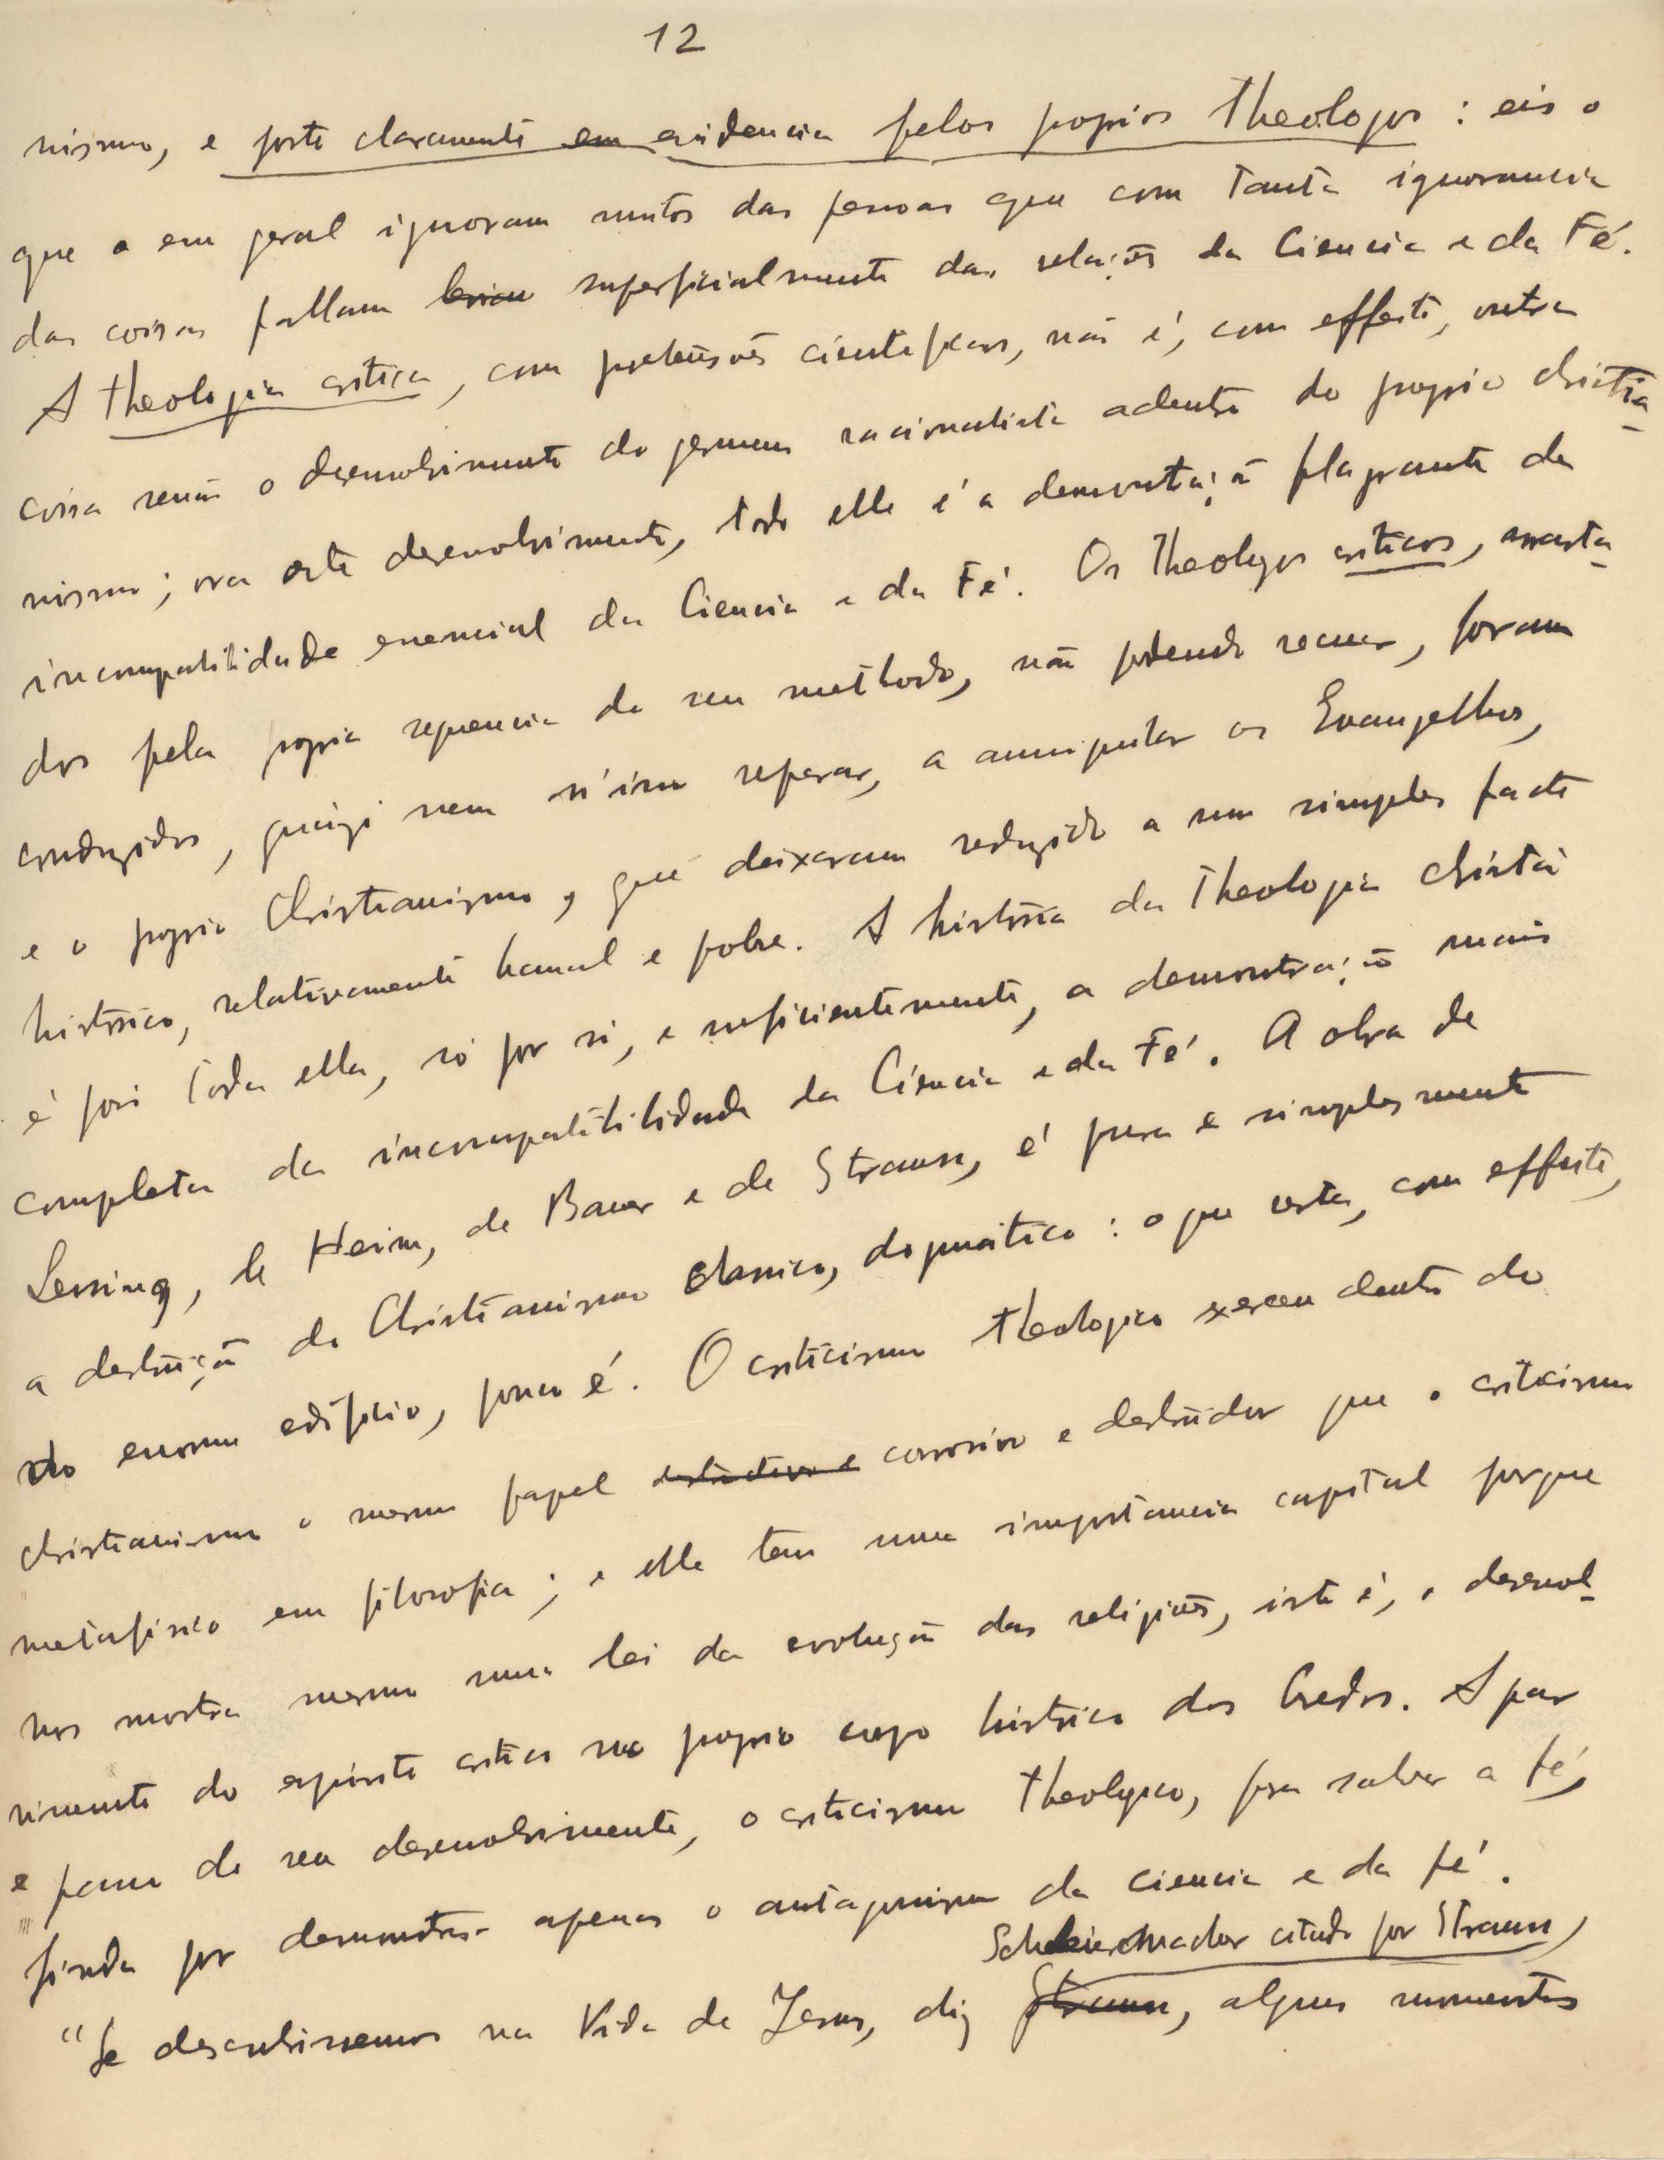 12
nismo, e posto claramente em evidencia pelos proprios theologos : eis o
que a em geral ignoram muitos das pessoas que com tanta ignorancia
das coisas fallam superficialmente das relações da Ciencia e da Fé.
A theologia critica, com pretensões cientificas, não é, com effeito, outra
coisa senão o desenvolvimento do germen racionalista adentro do proprio christia-
nismo; ora este desenvolvimento, todo elle é a demonstração flagrante da
incompatibilidade essencial da Ciencia e da Fé. Os theologos criticos, arrasta-
dos pela propria sequencia do seu methodo, não podendo recuar, foram
conduzidos, quiçá sem n'isso reparar, a aniquilar os Evangelhos,
e o proprio Christianismo, que deixaram reduzido a um simples facto
historico, relativamente banal e pobre. A história da Theologia christã
é pois toda ella, só por si, e suficientemente, a demonstração mais
completa da incompatibilidade da Ciencia e da Fé. A obra de
Lessing, de Heim, de Bauer e de Strauss, é pura e simplesmente
a destruição do Christianismo classico, dogmático : o que resta, com effeito,
do enorme edificio, pouco é. O criticismo theologico exerceu dentro do
christianismo o mesmo papel destructivo e corrosivo e destruidor que o criticismo
metafisico em filosofia ; e elle tem uma importancia capital porque
nos mostra mesmo uma lei da evolução das religiões, isto é, o desenvol-
vimento do espirito critico no proprio corpo historico dos Credos. A par
e passo do seu desenvolvimento, o criticismo theologico, para salvar a fé,
finda por demonstrar apenas o antagonismo da ciencia e da fé.
Schleiermacher citado por Strauss,
"Se descobrissemos na Vida de Jesus, diz Strauss, alguns momentos